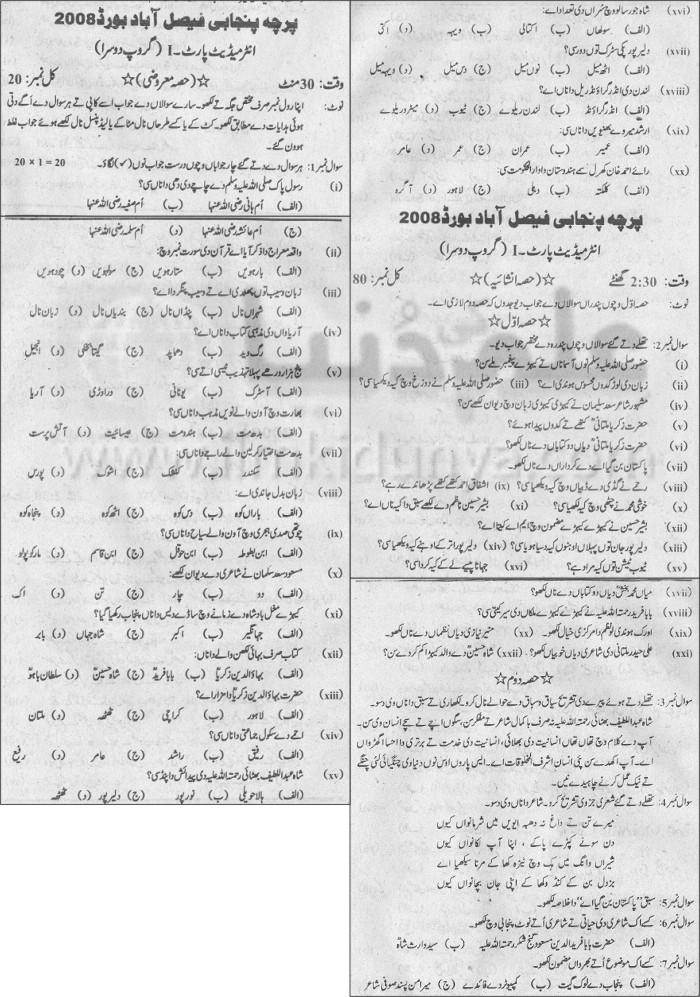 پرچہ پنجابی فیصل آباد بورڈ 2008
انٹرمیڈیٹ پارٹ۔ I (گروپ دوسرا)
وقت: 30 منٹ ☆(حصہ معروضی)☆ کل نمبر: 20
نوٹ: اپنا رول نمبر صرف مختص جگہ تے لکھو۔ سارے سوالاں دے جواب ایسے کاپی تے ہر سوال دے اگے دتی
ہوئی ہدایات دے مطابق لکھو۔ کٹ کے یا کسے طرحاں نال مٹا کے یا لیڈ پنسل نال لکھے ہوئے جواب غلط
ہوون گے۔
سوال نمبر 1: ہر سوال دے دتے گئے چار جواباں وچوں درست جواب نوں (✓) لگاؤ۔ 20 × 1 = 20
(i) رسول پاک صلی اللہ علیہ وسلم دے چاچے دی دھی دا ناں سی؟
(الف) اُم ہانی رضی اللہ عنہا (ب) اُم صفیہ رضی اللہ عنہا
(ج) اُم عائشہ رضی اللہ عنہا (د) اُم سلمہ رضی اللہ عنہا
(ii) واقعہ معراج دا ذکر آیا اے قرآن دی سورت نمبر وچ:
(الف) بارہویں (ب) ستارہویں (ج) سولہویں (د) چودہویں
(iii) زبان وسیب توں پھلدی اے تے وسیب پنگردا اے؟
(الف) شہراں نال (ب) پنڈاں نال (ج) بندیاں نال (د) زبان نال
(iv) آریاواں دی مذہبی کتاب دا ناں اے؟
(الف) رگ وید (ب) دھاپد (ج) گیتانجلی (د) انجیل
(v) پنج ہزار ورھے پہلاں تہذیب کیہی ایتھے سی؟
(الف) آسٹرک (ب) یونانی (ج) دراوڑی (د) آریا
(vi) بھارت وچ آون والے نویں مذہب دا ناں سی؟
(الف) بدھ مت (ب) ہندومت (ج) عیسائیت (د) آتش پرست
(vii) بدھ مت اختیار کرلین والے راجے دا ناں سی:
(الف) سکندر (ب) کنشک (ج) اشوک (د) پورس
(viii) زبان بدل جاندی اے:
(الف) باراں کوہ (ب) دس کوہ (ج) اٹھ کوہ (د) پنجاہ کوہ
(ix) چوتھی صدی ہجری وچ آون والے سیاح دا ناں سی؟
(الف) ابن بطوطہ (ب) ابن حوقل (ج) ابن قاسم (د) مارکوپولو
(x) مسعود سعد سلمان نے شاعری دے دیوان لکھے:
(الف) دو (ب) چار (ج) تن (د) اک
(xi) کیہڑے مغل بادشاہ دے زمانے وچ ساڈے دیس دا ناں پنجاب رکھیا گیا؟
(الف) جہانگیر (ب) اکبر (ج) شاہ جہاں (د) بابر
(xii) کتاب صرف بھائی لکھن والے دا ناں:
(الف) بہاؤالدین زکریا (ب) بابا فرید (ج) شاہ حسین (د) سلطان باہو
(xiii) حضرت بہاؤالدین زکریا دا مزار اے؟
(الف) لاہور (ب) کراچی (ج) ٹھٹھہ (د) ملتان
(xiv) اجے دے سکول جماعتی دا ناں سی؟
(الف) رفیق (ب) راشد (ج) عامر (د) رفیع
(xv) شاہ عبداللطیف بھٹائی رحمۃ اللہ علیہ دی پیدائش دا پنڈ سی؟
(الف) ہالا حویلی (ب) نور پور (ج) دلیر پور (د) ٹھٹھہ
(xvi) شاہ جو رسالو وچ سُراں دی تعداد اے:
(الف) سولہاں (ب) اکتالی (ج) ویہہ (د) اکتی
(xvii) دلیر پور پکی سڑک توں دور سی؟
(الف) اٹھ میل (ب) نوں میل (ج) دس میل (د) ویہہ میل
(xviii) لندن دی انڈر گراؤنڈ ریل دا ناں اے؟
(الف) انڈر گراؤنڈ (ب) لندن ریلوے (ج) ٹیوب (د) میٹرو ریلوے
(xix) ارشد میر دے بھنویں دا ناں سی:
(الف) عمیر (ب) عمران (ج) عمر (د) عامر
(xx) رائے احمد خان کھرل سے ہندوستان دا دارالحکومت سی:
(الف) کلکتہ (ب) دہلی (ج) لاہور (د) آگرہ
پرچہ پنجابی فیصل آباد بورڈ 2008
انٹرمیڈیٹ پارٹ۔ I (گروپ دوسرا)
وقت: 2:30 گھنٹے ☆(حصہ انشائیہ)☆ کل نمبر: 80
نوٹ: حصہ اوّل وچوں پندراں سوالاں دے جواب دیو جدوں کہ حصہ دوم لازمی اے۔
☆ حصہ اوّل ☆
سوال نمبر 2: تھلے دتے گئے سوالاں وچوں پندرہ دے مختصر جواب دیو۔
(i) حضور صلی اللہ علیہ وسلم نوں آسماناں تے کیہڑے پیغمبر ملے سن؟
(ii) زبان دی لوڑ کدوں محسوس ہوندی اے؟ (iii) حضور صلی اللہ علیہ وسلم نے دوزخ وچ کیہ دیکھیا سی؟
(iv) مشہور شاعر سعد سلیمان نے کیہڑی کیہڑی زبان وچ دیوان لکھے سن؟
(v) حضرت زکریا ملتانی کتھے تے کدوں پیدا ہوئے؟
(vi) حضرت زکریا ملتانی دیاں دو کتاباں دے ناں لکھو۔
(vii) پاکستان بن گیا اے دے کرداراں دے ناں لکھو۔
(viii) رحمے نے گڈی دے ڈبیاں وچ کیہ دیکھیا سی؟ (ix) اشفاق احمد کتھے کتھے پڑھاندے رہے؟
(x) خوشی محمد نے چٹھی وچ کیہ لکھیا سی؟ (xi) بشیر حسین ناظم دے لکھے سبق دا کیہ ناں اے؟
(xii) بشیر حسین نے کیہڑے کیہڑے مضمون وچ ایم اے کیتا اے؟
(xiii) دلیر پور جان توں پہلاں اوہنوں کیہ دسیا ہویا سی؟ (xiv) دلیر پور اتر کے اوہنے کیہ دیکھیا سی؟
(xv) ٹیوب سٹیشن توں کیہ مراد ہے؟ (xvi) جہانا پیسے لے کے کیہ کردا سی؟
(xvii) میاں محمد بخش دیاں دو کتاباں دے ناں لکھو۔
(xviii) بابا فرید رحمۃ اللہ علیہ نے کیہڑے کیہڑے ملکاں دی سیر کیتی سی؟
(xix) اورک ہوندی لو نظم دا مرکزی خیال لکھو۔ (xx) منیر نیازی دیاں نظماں دے ناں لکھو۔
(xxi) علی حیدر ملتانی دی شاعری دیاں خوبیاں لکھو؟ (xxii) شاہ حسین دے والد کیہڑا کم کردے سن؟
☆ حصہ دوم ☆
سوال نمبر 3: تھلے دتے ہوئے پیرے دی تشریح سیاق و سباق دے حوالے نال کرو۔ لکھاری تے سبق دا ناں وی دسو۔
شاہ عبداللطیف بھٹائی رحمۃ اللہ علیہ نہ صرف باکمال شاعر تے مفکر سن، سگوں اچے تے سچے انسان وی سن۔
آپ دے کلام وچ تھاں تھاں انسانیت دی بھلائی، انسانیت دی خدمت تے برتری دا احساس اگھڑواں
اے۔ آپ اکھدے سن پئی انسان اشرف المخلوقات اے۔ ایس پاروں اوس نوں دنیا وی چنگیائی لئی چنگے
تے نیک عمل کرنے چاہیدے نیں۔
سوال نمبر 4: تھلے دتے گئے شعری جز دی تشریح کرو۔ شاعر دا ناں وی دسو۔
میرے تن تے داغ نہ دھبہ ایویں میں شرمانواں کیوں
دن سونے کپڑے پاکے ، اپنا آپ لکانواں کیوں
شیراں وانگ میں ہک وچ نیزہ کھا کے مرنا سکھیا اے
بزدل بن کے کنڈ وکھا کے اپنی جان بچانواں کیوں
سوال نمبر 5: سبق "پاکستان بن گیا اے" دا خلاصہ لکھو۔
سوال نمبر 6: کسے اک شاعر دی حیاتی تے شاعری اُتے نوٹ پنجابی وچ لکھو۔
(الف) حضرت بابا فرید الدین مسعود گنج شکر رحمۃ اللہ علیہ (ب) سید وارث شاہ
سوال نمبر 7: کسے اک موضوع اُتے بھرواں مضمون لکھو۔
(الف) پنجاب دے لوک گیت (ب) کمپیوٹر دے فائدے (ج) میرا من پسند صوفی شاعر